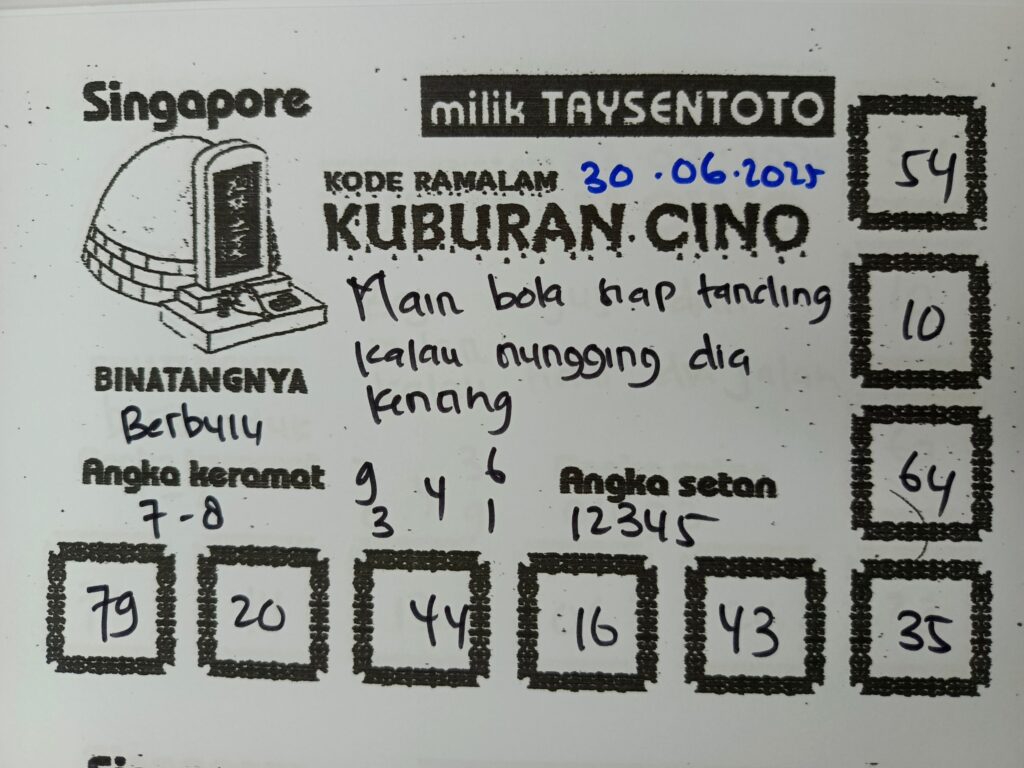 Singapore
milik TAYSENTOTO
KODE RAMALAM 30.06.2025
KUBURAN CINO
Main bola siap tanding
Kalau nungging dia
Kencing
BINATANGNYA
Berbulu
Angka keramat
7-8
9 4 6
3 1
Angka setan
12345
54
10
64
79 20 44 16 43 35